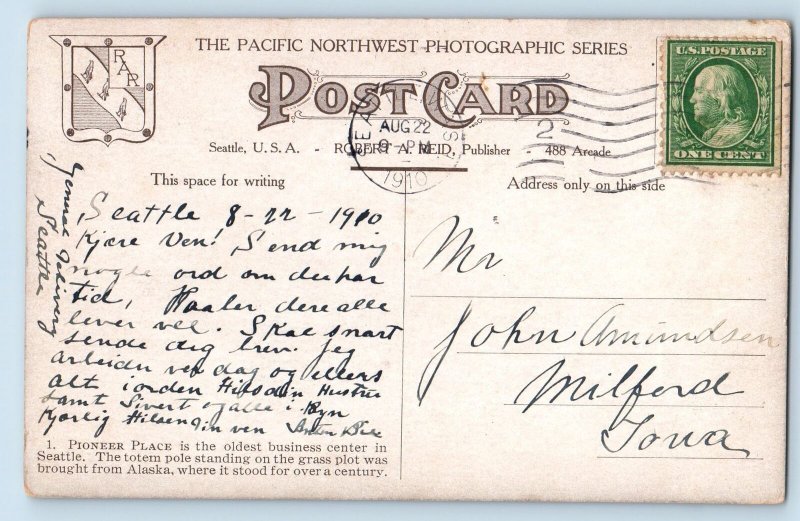 RAR
THE PACIFIC NORTHWEST PHOTOGRAPHIC SERIES
POST CARD
Seattle, U.S.A. - ROBERT A. REID, Publisher - 488 Arcade
This space for writing
Address only on this side
SEATTLE WASH
AUG 22
9 - PM
1910
2
U.S. POSTAGE
ONE CENT
General Delivery
Seattle
Seattle 8-22-1910
Kjære Ven! Send mig
nogle ord om du har
tid, Haaber dere alle
lever vel. Skal snart
sende dig brev. Jeg
arbeider ver dag og ellers
alt i orden Hils din Hustru
samt Sivert og alle i Byn
Kjærlig Hilsen din ven Anton
Mr
John Amundsen
Milford
Iowa
1. PIONEER PLACE is the oldest business center in
Seattle. The totem pole standing on the grass plot was
brought from Alaska, where it stood for over a century.